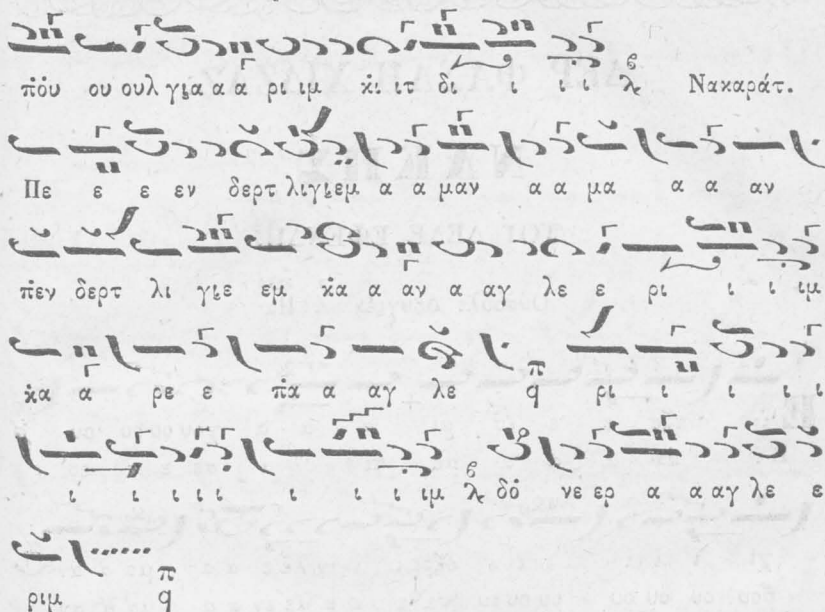 π̇όυ ου ουλ για α α ρι ιμ κ̇ι ιτ δι ι ι ι Νακαράτ.
Πε ε ε εν δερτ λιγιεμ α α μαν α α μα α α αν
π̇εν δερτ λι γιε εμ κ̇α α αν α αγ λε ε ρι ι ι ιμ
κ̇α α ρε ε π̇α α αγ λε π q ρι ι ι ι
ι ι ι ι ι ι ι ι ιμ δό νε ερ α α αγ λε ε
ριμ π q